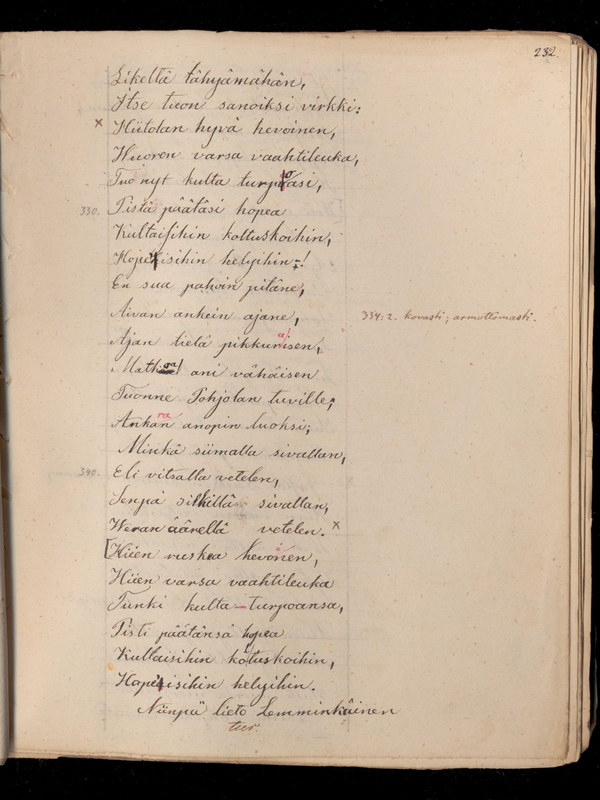 232.
Likeltä tähyämähän,
Itse tuon sanoiksi virkki:
x Hiitolan hyvä hevoinen,
Huoren varsa vaahtileuka,
Tuo nyt kulta turpoasi,
330. Pistä päätäsi hopea
Kultaisihin kottuskoihin,
Hopeisihin helyihin!
En sua pahoin pitäne,
Aivan ankein ajane,
334: 2. kovasti; armottomasti.
Ajan tietä pikkuisen,
Matkoa ani vähäisen
Tuonne Pohjolan tuville;
Ankaran anopin luohsi;
Minkä siimalla sivallan,
340. Eli vitsalla vetelen,
Senpä silkillä sivallan,
Weran äärellä vetelen. x
[Hiien ruskea hevoinen,
Hiien varsa vaahtileuka
Tunki kulta-turpoansa,
Pisti päätänsä hopea
Kultaisihin kotuskoihin,
Hopeisihin helyihin.
Niinpä lieto Lemminkäinen
tur.